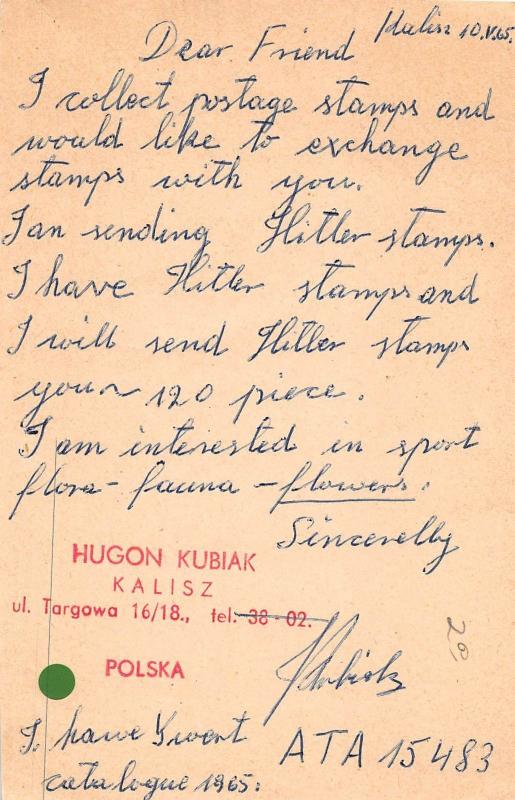 Kalisz 10.V.65.
Dear Friend
I collect postage stamps and
would like to exchange
stamps with you.
I an sending Hitler stamps.
I have Hitler stamps and
I will send Hitler stamps
your 120 piece.
I am interested in sport
flora - fauna - flowers.
Sincerelly
HUGON KUBIAK
KALISZ
ul. Targowa 16/18., tel. 38-02.
POLSKA
HKubiak
20
I. hawe Ywert
catalogue 1965:
ATA 15483